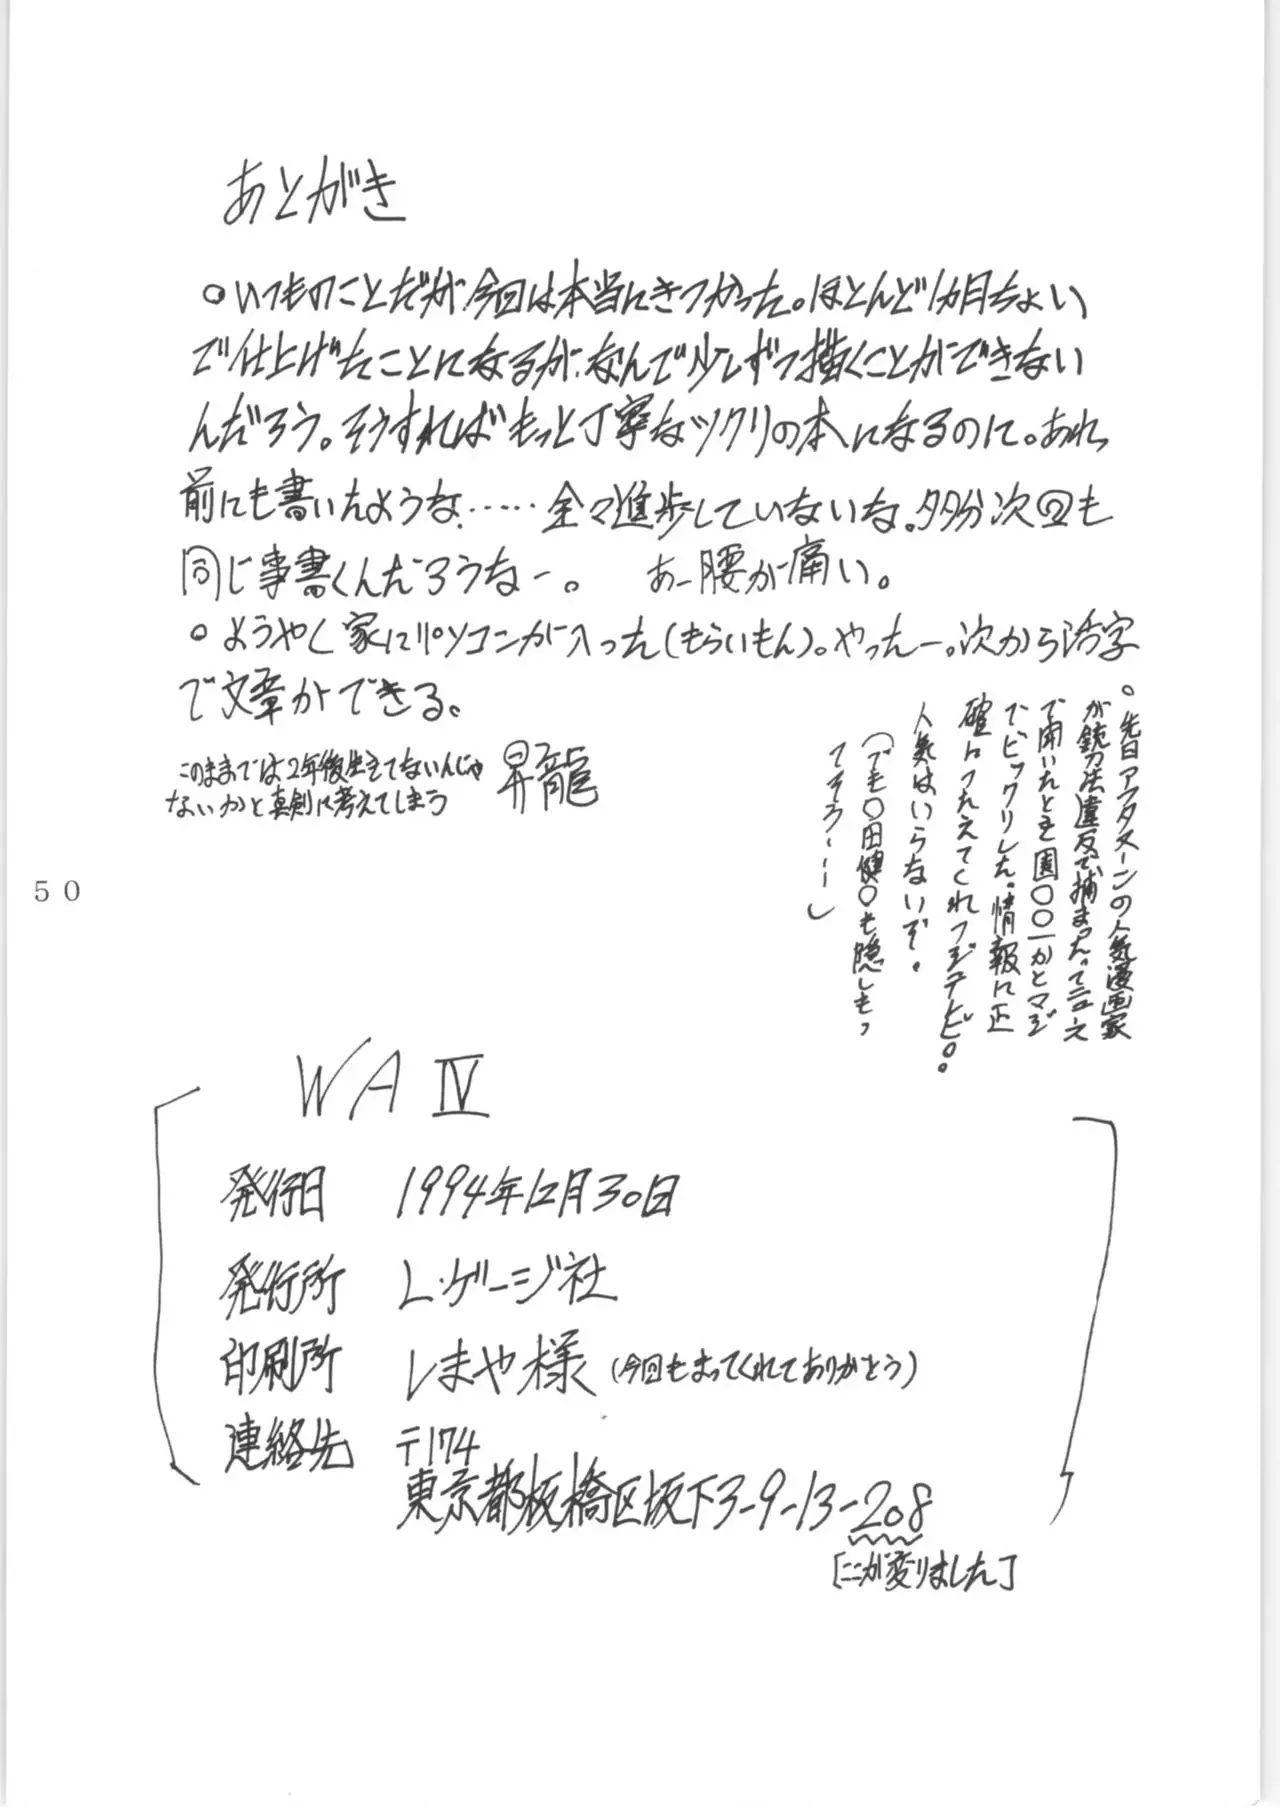 あとがき
○いつものことだが、今回は本当にきつかった。ほとんど1ヵ月ちょい
で仕上げたことになるが、なんで少しずつ描くことができない
んだろう。そうすればもっと丁寧なツクリの本になるのに。あれっ
前にも書いたような……全々進歩していないな。多分次回も
同じ事書くんだろうなー。 あー腰が痛い。
○ようやく家にパソコンが入った(もらいもん)。やったー。次から活字
で文章ができる。
このままでは2年後生きてないんじゃ
ないかと真剣に考えてしまう
昇龍
○先日アフタヌーンの人気漫画家
が銃刀法違反で捕まったってニュース
で聞いたとき園○○一かとマジ
でビックリした。情報は正
確につたえてくれフジテレビ。
人気はいらないぞ。
(でも○田健○も隠しもっ
てそう…)
50
WA Ⅳ
発行日 1994年12月30日
発行所 L・ゲージ社
印刷所 しまや様(今回もまってくれてありがとう)
連絡先 〒174
東京都板橋区坂下3-9-13-208
[ここが変りました]